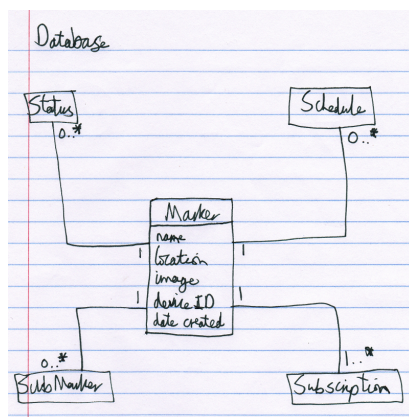 Database
Status
Schedule
0..*
0..*
Marker
name
location
image
device ID
date created
1
1
1
1
0..*
1..*
SubMarker
Subscription